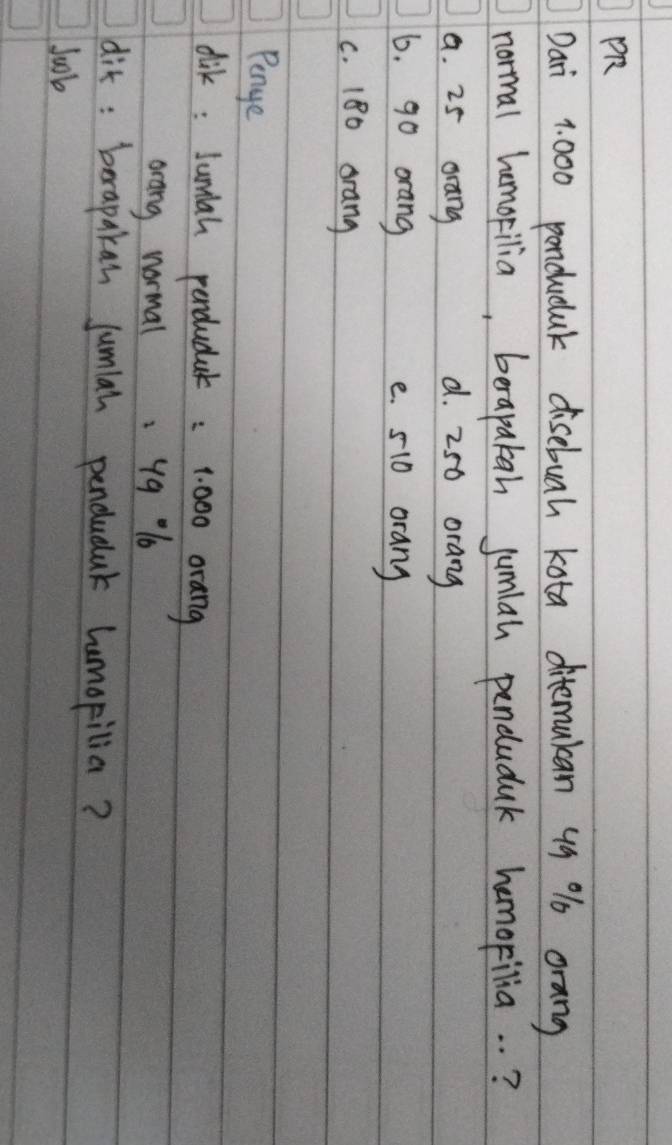 PR
Dari 1.000 penduduk disebuah kota ditemukan 49 % orang
normal hemofilia, berapakah jumlah penduduk hemofilia ..?
a. 25 orang d. 250 orang
b. 90 orang e. 510 orang
c. 180 orang
Penye
dik : Jumlah penduduk : 1.000 orang
orang normal : 49 %
dit : berapakah jumlah penduduk hemofilia ?
Jwb